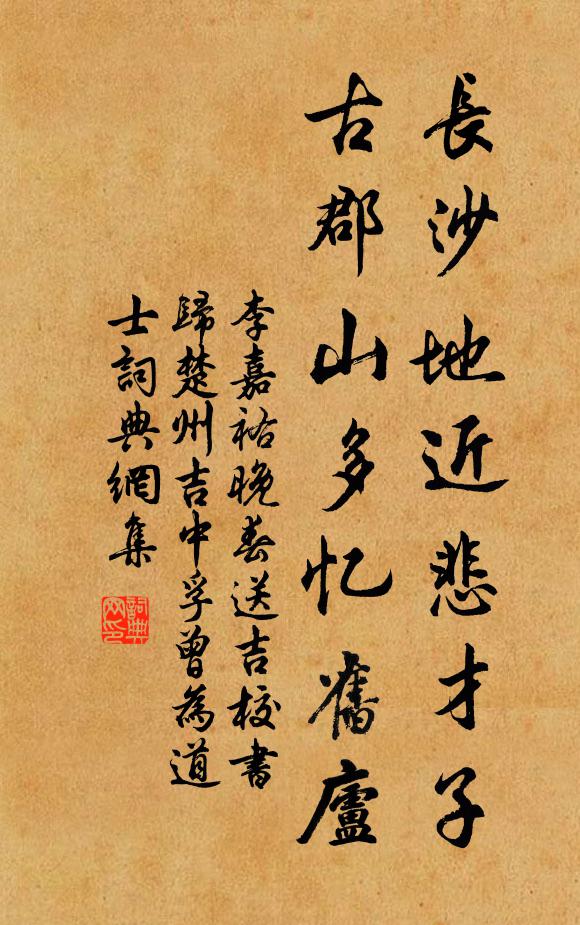 長沙地近悲才子
古郡山多忆舊廬
李嘉祐晚春送吉校書
歸楚州吉中孚曾為道
士詞典網集
詞典网印